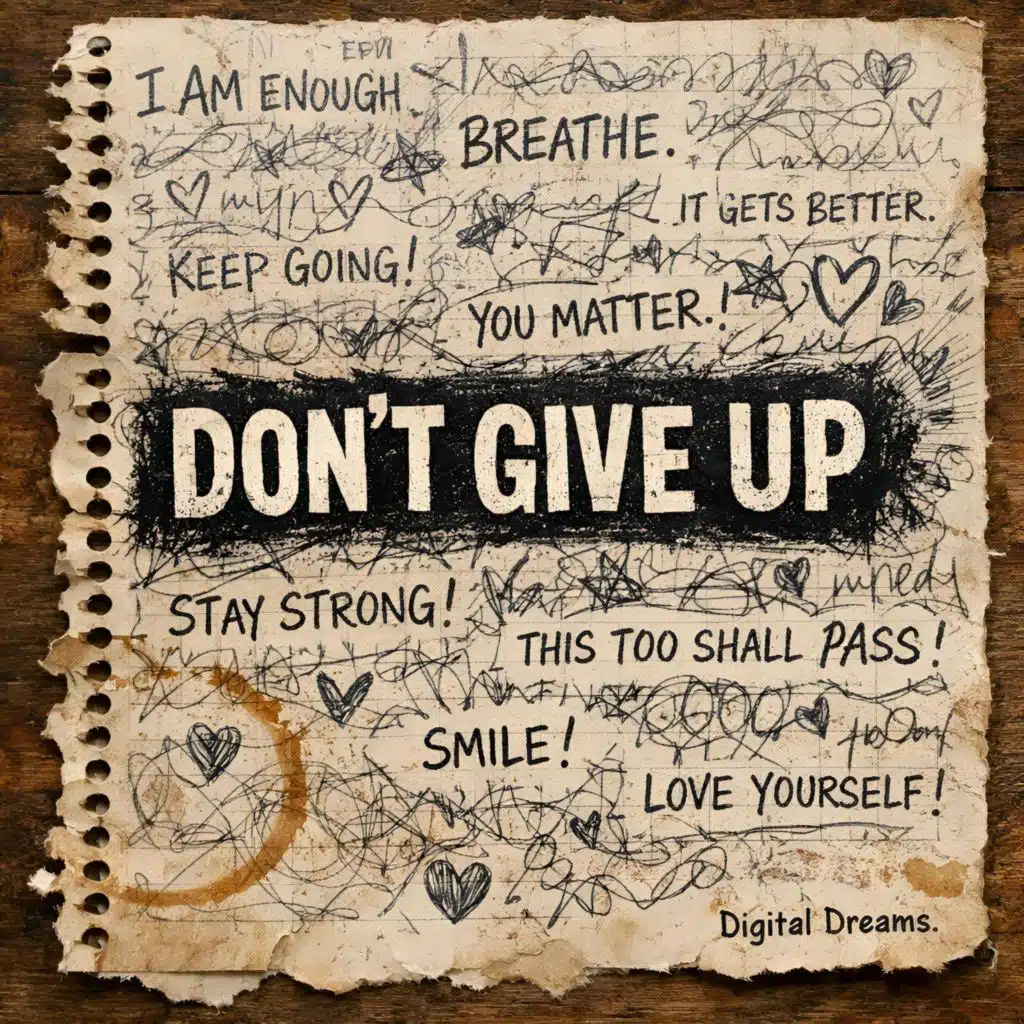 I AM ENOUGH
BREATHE.
IT GETS BETTER.
KEEP GOING!
YOU MATTER.!
DON'T GIVE UP
STAY STRONG!
THIS TOO SHALL PASS!
SMILE!
LOVE YOURSELF!
Digital Dreams.